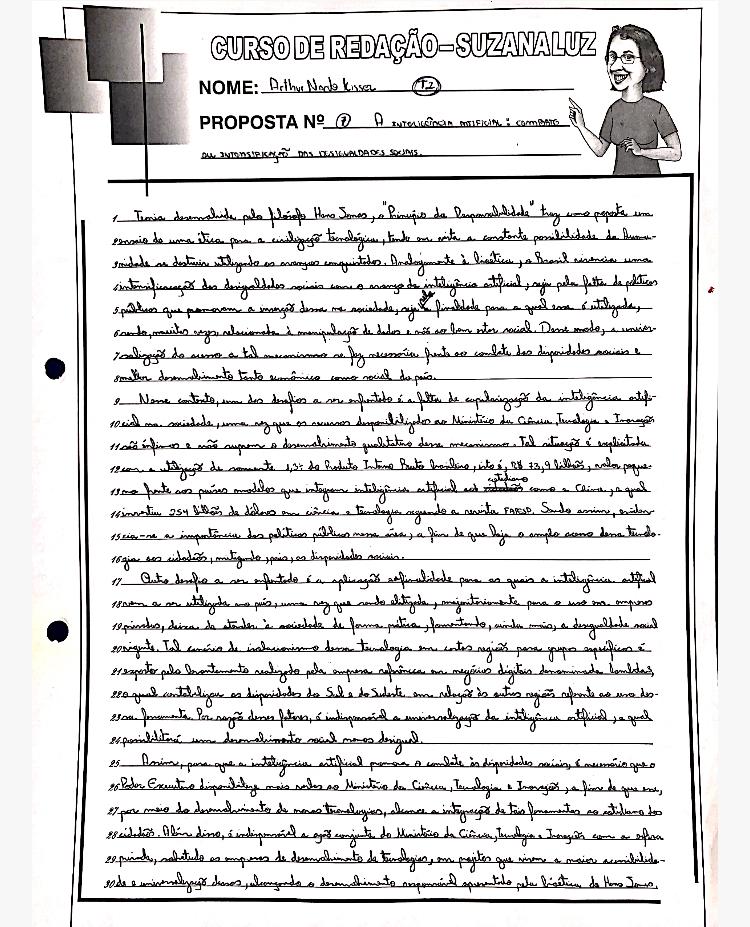 CURSO DE REDAÇÃO-SUZANA LUZ
NOME: Arthur T2
PROPOSTA Nº 1 A INTELIGÊNCIA ARTIFICIAL: COMBATE
OU INTENSIFICAÇÃO DAS DESIGUALDADES SOCIAIS.
1 Teoria desenvolvida pelo filósofo Hans Jonas, o "Princípio da Responsabilidade" traz como proposta um
2 ensaio de uma ética para a civilização tecnológica, tendo em vista a constante possibilidade da huma-
3 nidade se destruir utilizando os avanços conquistados. Analogamente à bioética, o Brasil vivencia uma
4 intensificação das desigualdades sociais com o avanço da inteligência artificial, seja pela falta de políticas
5 públicas que promovam a inserção dessa na sociedade, seja da finalidade para a qual essa é utilizada,
6 sendo, muitas vezes, relacionada à manipulação de dados e não ao bem estar social. Desse modo, a univer-
7 salização do acesso a tal mecanismo se faz necessária frente ao combate das disparidades sociais e
8 melhor desenvolvimento tanto econômico como social do país.
9 Nesse contexto, um dos desafios a ser enfrentado é a falta de popularização da inteligência artifi-
10 cial na sociedade, uma vez que os recursos disponibilizados ao Ministério da Ciência, Tecnologia e Inovação
11 são ínfimos e não suprem o desenvolvimento qualitativo desse mecanismo. Tal situação é explicitada
12 com a utilização de somente 1,3% do Produto Interno Bruto brasileiro, isto é, R$ 73,9 bilhões, valor peque-
13 no frente aos países modelos que integram inteligência artificial ao cotidiano como a China, a qual
14 investiu 254 bilhões de dólares em ciência e tecnologia segundo a revista FAPESP. Sendo assim, eviden-
15 cia-se a importância das políticas públicas nessa área, a fim de que haja o amplo acesso dessa tecnolo-
16 gia aos cidadãos, mitigando, pois, as disparidades sociais.
17 Outro desafio a ser enfrentado é a aplicação e a finalidade para as quais a inteligência artificial
18 vem a ser utilizada no país, uma vez que sendo elitizada, majoritariamente para o uso em empresas
19 privadas, deixa de atender à sociedade de forma prática, fomentando, ainda mais, a desigualdade social
20 vigente. Tal cenário de isolacionismo dessa tecnologia em certas regiões para grupos específicos é
21 exposto pelo levantamento realizado pela empresa referência em negócios digitais denominada lambda3,
22 o qual contabilizou as disparidades do Sul e do Sudeste em relação às outras regiões referente ao uso des-
23 sa ferramenta. Por razão desses fatores, é indispensável a universalização da inteligência artificial, a qual
24 possibilitará um desenvolvimento social menos desigual.
25 Assim, para que a inteligência artificial promova o combate às disparidades sociais, é necessário que o
26 Poder Executivo disponibilize mais verbas ao Ministério da Ciência, Tecnologia e Inovação, a fim de que esse,
27 por meio do desenvolvimento de novas tecnologias, alcance a integração de tais ferramentas ao cotidiano dos
28 cidadãos. Além disso, é indispensável a ação conjunta do Ministério da Ciência, Tecnologia e Inovação com a esfera
29 privada, sobretudo as empresas de desenvolvimento de tecnologias, em projetos que visem a maior acessibilida-
30 de e universalização dessas, alcançando o desenvolvimento responsável apresentado pela bioética de Hans Jonas.